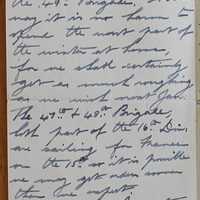 the 49th Brigade,
may it is no harm to
spend the worst part of
the winter at home,
for we shall certainly
get as much roughing
as we wish next Jan.
The 49th & 48th Brigade,
both part of the 16th Div.
are sailing for France
on the 15th so it is possible
we may get orders sooner
than we expect.